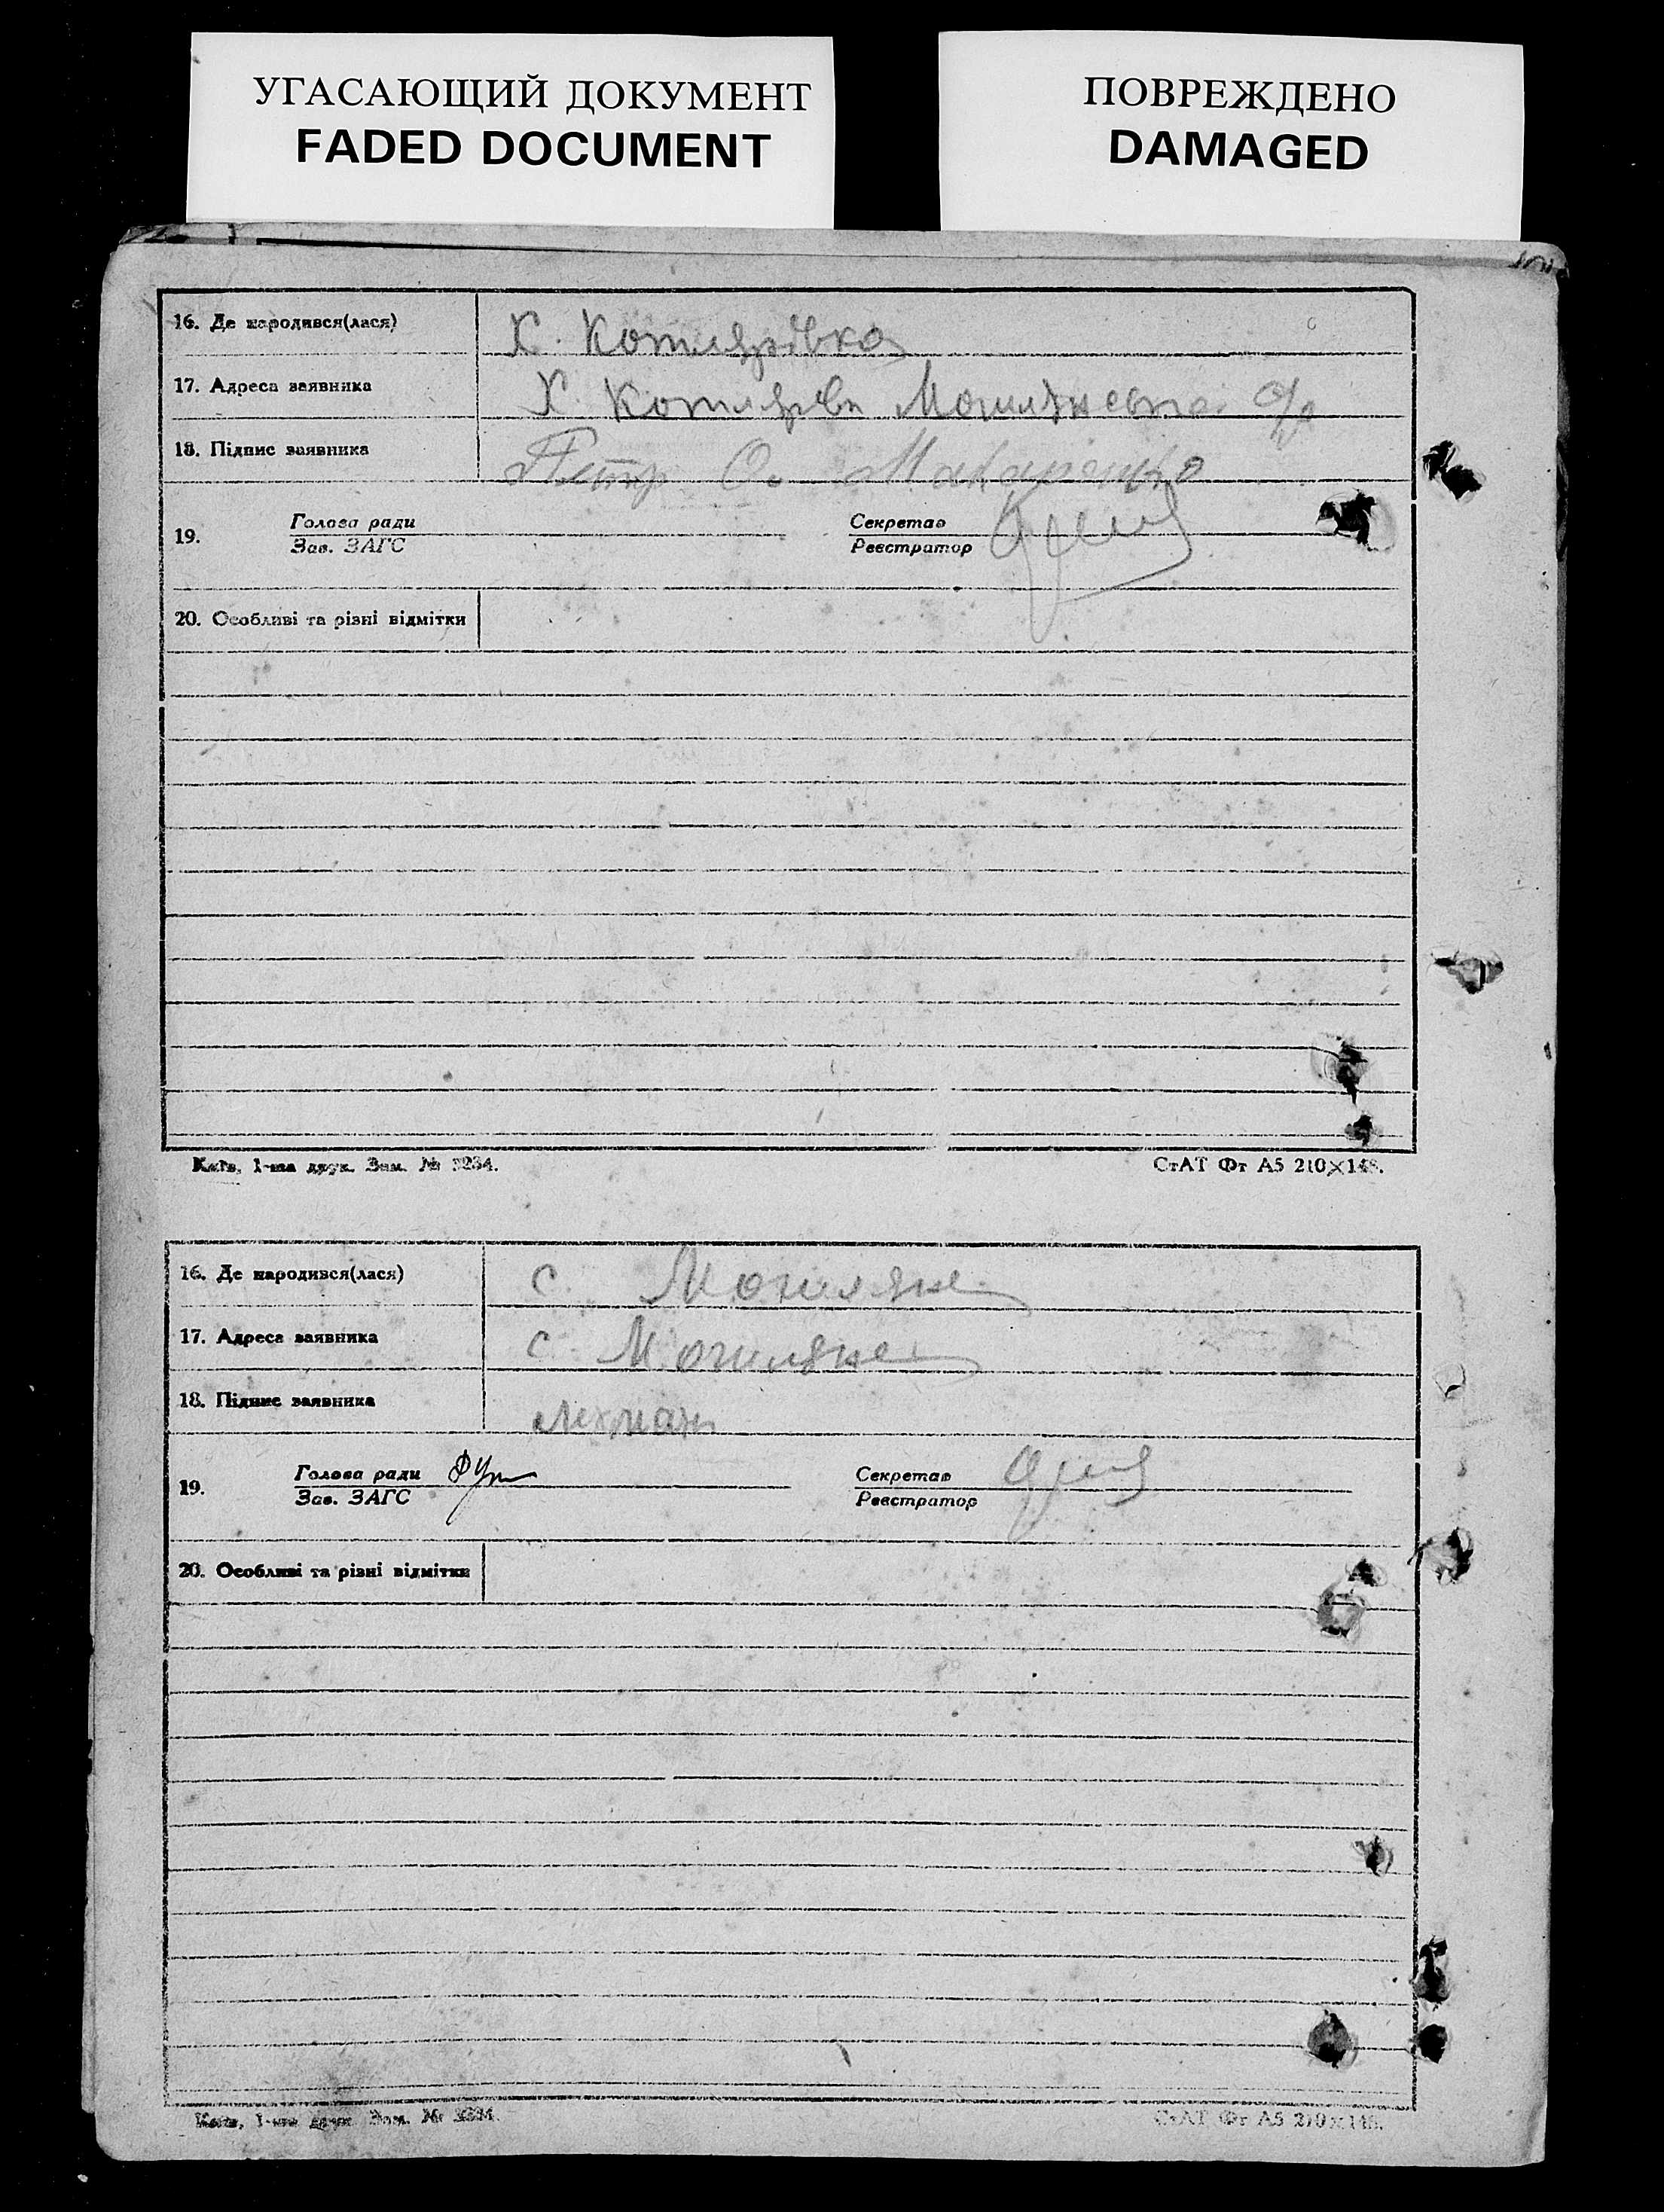 УГАСАЮЩИЙ ДОКУМЕНТ
FADED DOCUMENT
ПОВРЕЖДЕНО
DAMAGED
16. Де народився(лася) Х. Котлярівка
17. Адреса заявника Х. Котлярівка
18. Підпис заявника Петр О. Макаренко
19. Голова ради Секретар
Зав. ЗАГС Реєстратор
20. Особливі та різні відмітки
Київ, 1-ша друк. Зам. № 3234. СтАТ Фт А5 210×148.
16. Де народився(лася) с. Могиляне
17. Адреса заявника с. Могиляне
18. Підпис заявника
19. Голова ради Секретар
Зав. ЗАГС Реєстратор
20. Особливі та різні відмітки
Київ, 1-ша друк. Зам. № 3234. СтАТ Фт А5 210×148.